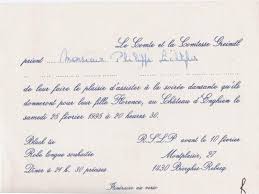 Le Comte et la Comtesse Greindl
prient Monsieur Philippe
de leur faire le plaisir d'assister à la soirée dansante qu'ils
donneront pour leur fille Florence, au Château d'Enghien le
samedi 25 février 1995 à 20 heures 30.
Black tie R.S.V.P. avant le 10 février
Robe longue souhaitée Montplaisir, 27
Dîner à 21 h. 30 précises 1430 Bierghes-Rebecq
Itinéraire au verso
R